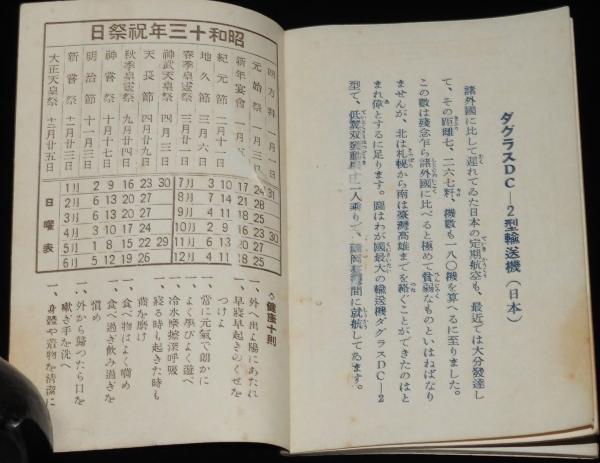 ダグラスDC―2型輸送機（日本）
諸外國に比して遅れてゐた日本の定期航空も、最近では大分發達し
て、その距離七、二六七粁、機數も一八〇機を算へるに至りました。
この數は殘念乍ら諸外國に比べると極めて貧弱なものといはねばなり
ませんが、北は札幌から南は臺灣高雄までを繋ぐことができたのはと
まれ偉とするに足ります。圖はわが國最大の輸送機ダグラスDC―2
型で、低翼双發動機
人乘りで、
間に就航してゐます。
昭和十三年祝祭日
四方拜 一月一日
元始祭 一月三日
新年宴會 一月五
紀元節 二月十一
地久節 三月六日
春季皇靈祭 三月廿一日
神武天皇祭 四月三日
天長節 四月廿九日
秋季皇靈祭 九月廿四日
神嘗祭 十月十七日
明治節 十一月三日
新嘗祭 十一月廿三日
大正天皇祭 十二月廿五日
日曜表
1月 2 9 16 23 30
2月 6 13 20 27
3月 6 13 20 27
4月 3 10 17 24
5月 1 8 15 22 29
6月 5 12 19 26
7月 3 10 17 24 31
8月 7 14 21 28
9月 4 11 18 25
10月 2 9 16 23 30
11月 6 13 20 27
12月 4 11 18 25
◇健康十則
一、外へ出よ陽にあたれ
一、早寢早起きのくせを
つけよ
一、常に元氣で朗かに
一、よく學びよく遊べ
一、冷水摩擦深呼吸
一、寢る時も起きた時も
齒を磨け
一、食べ物はよく噛め
一、食べ過ぎ飮み過ぎを
愼め
一、外から歸つたら口を
嗽ぎ手を洗へ
一、身體や着物を清潔に